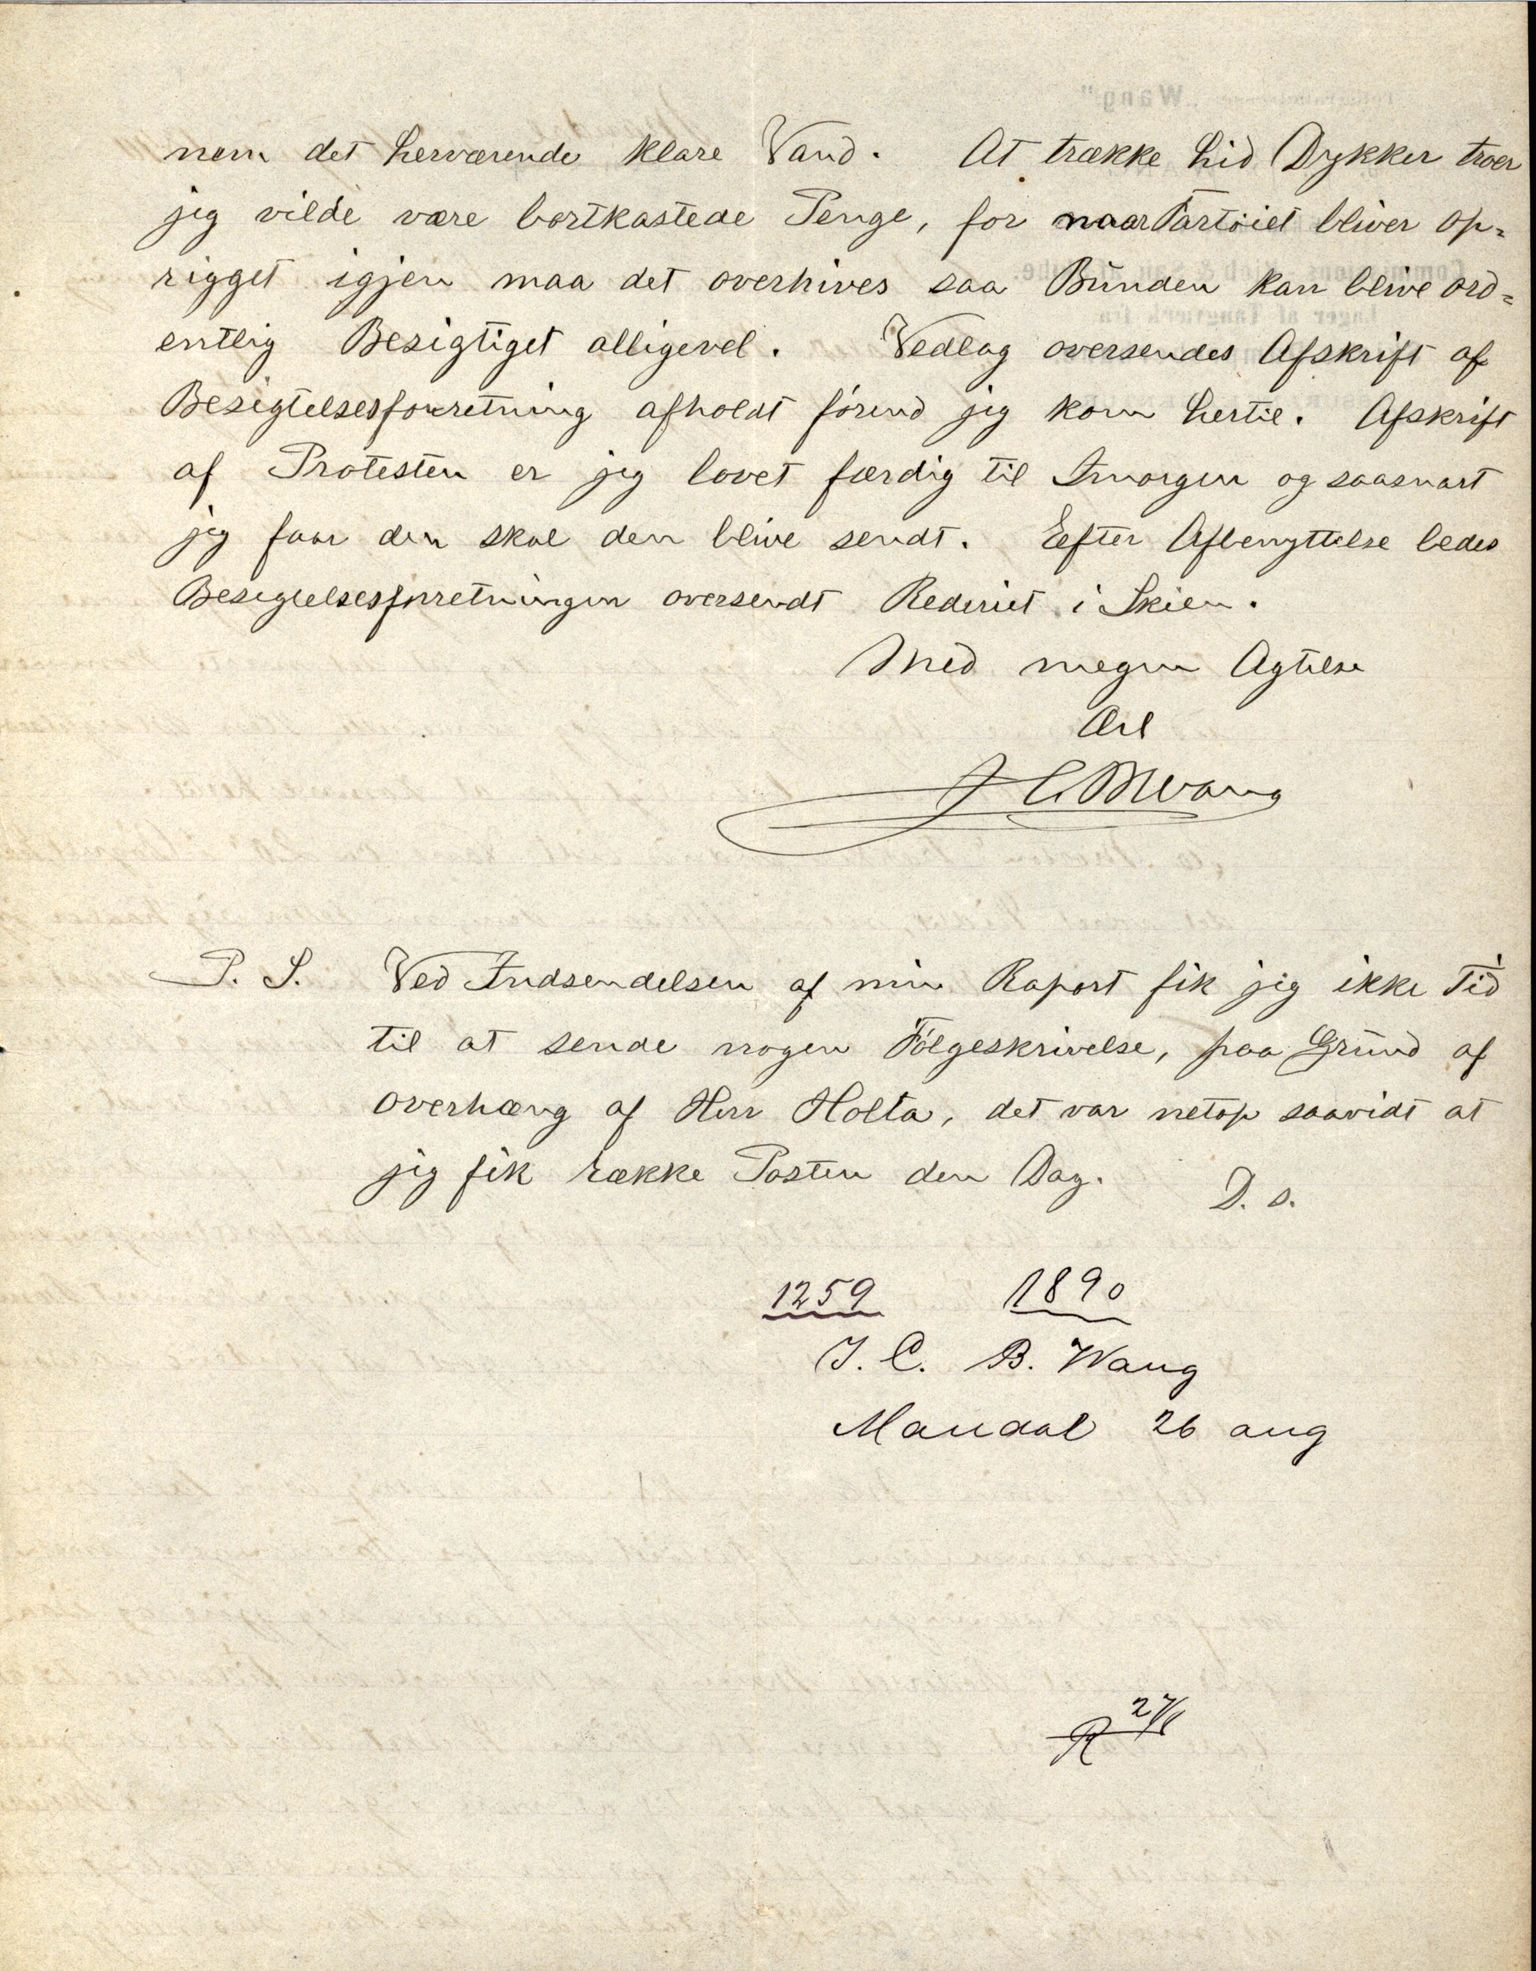 nem det herværende klare Vand. At trække hid Dykker troer
jeg vilde være bortkastede Penge, for naar Fartøiet bliver op=
rigget igjen maa det overhives saa Bunden kan blive ord=
entlig Besigtiget alligevel. Vedlag oversendes Afskrift af
Besigtelsesforretning afholdt førend jeg kom hertil. Afskrift
af Protesten er jeg lovet færdig til Imorgen og saasnart
jeg faar den skal den blive sendt. Efter Afbenyttelse bedes
Besigtelsesforretningen oversendt Rederiet i Skien.
Med megen Agtelse
Ærb
J C B Wang
P. S. Ved Indsendelsen af min Raport fik jeg ikke Tid
til at sende nogen Følgeskrivelse, paa Grund af
overhæng af Herr Holta, det var netop saavidt at
jeg fik række Posten den Dag. D. s.
1259 1890
J. C. B. Wang
Mandal 26 aug